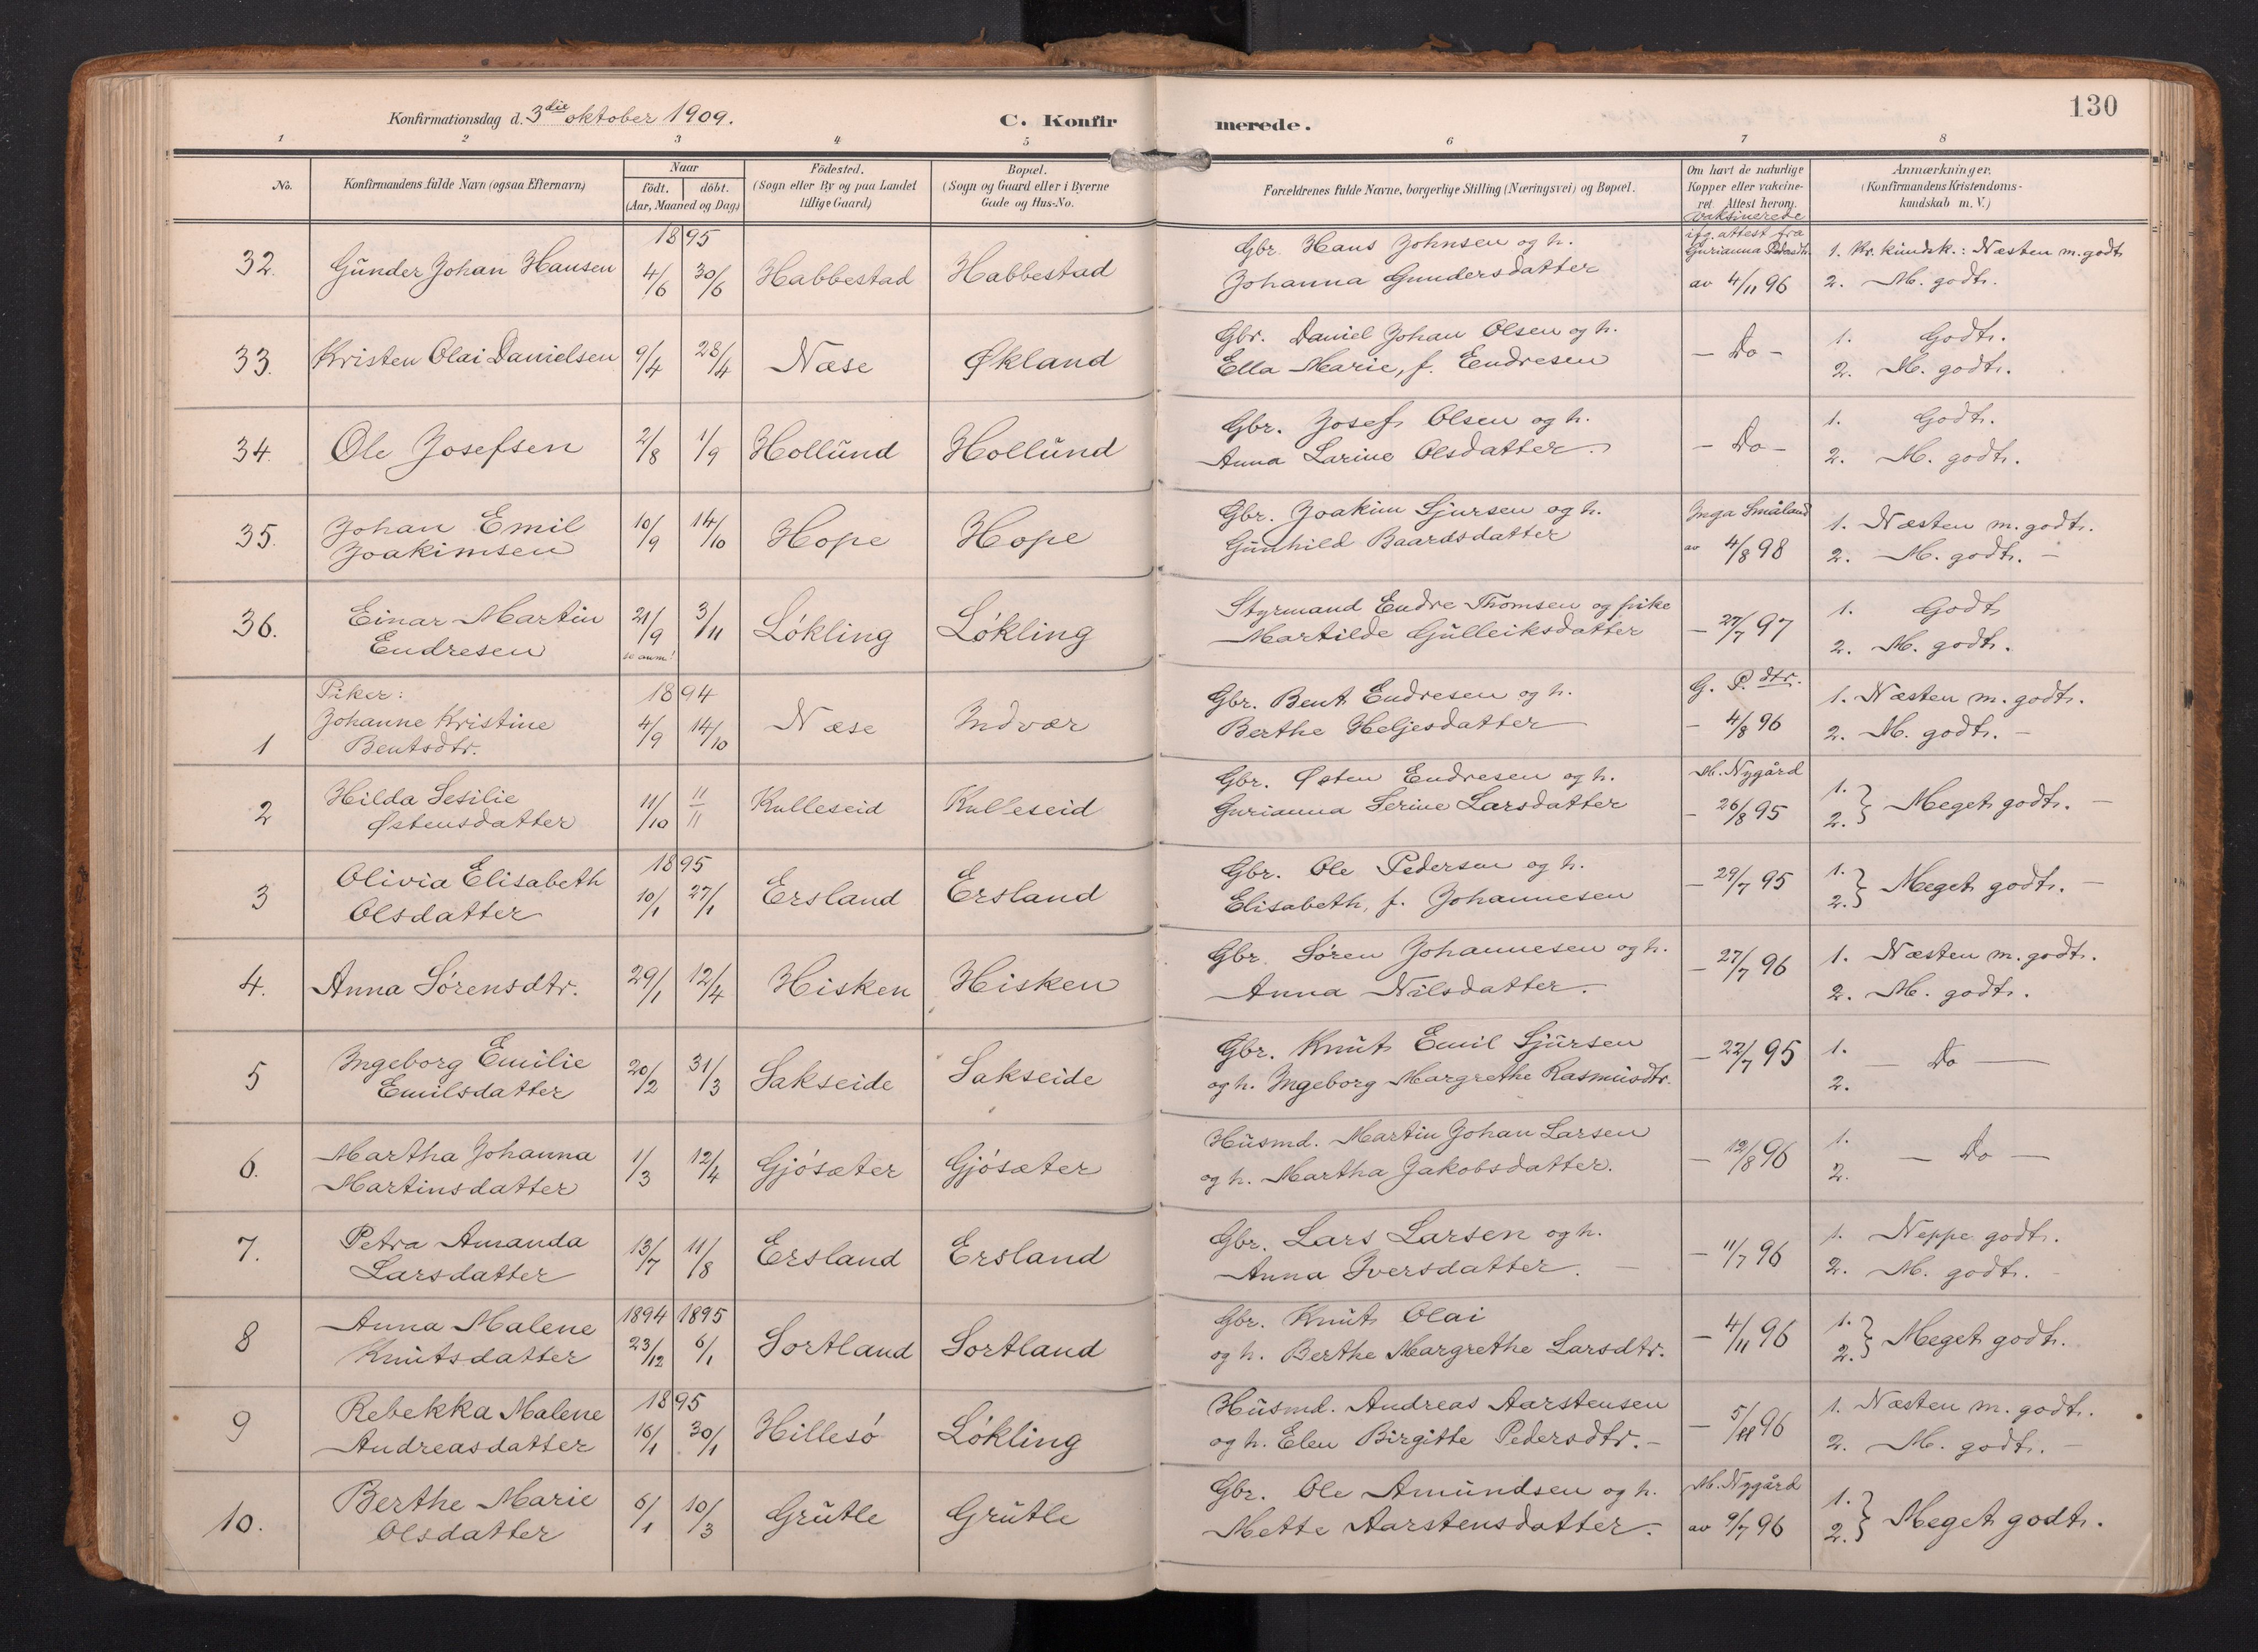 130
Konfirmationsdag d. 3die oktober 1909.
C. Konfirmerede.
1 2 3 4 5 6 7 8
No.
Konfirmandens fulde Navn (ogsaa Efternavn)
Naar
födt. döbt.
(Aar, Maaned og Dag)
Födested.
(Sogn eller By og paa Landet
tillige Gaard)
Bopæl.
(Sogn og Gaard eller i Byerne
Gade og Hus-No.
Forældrenes fulde Navne, borgerlige Stilling (Næringsvei) og Bopæl.
Om havt de naturlige
Kopper eller vakcine-
ret. Attest herom.
Anmærkninger.
(Konfirmandens Kristendoms-
kundskab m. V.)
vaksinerede
ifg. attest fra
Gurianna
1895
32. Gunder Johan Hansen 4/6 30/6 Habbestad Habbestad
Gbr. Hans Johnsen og h.
Johanna Gundersdatter
av 4/11 96
1. Kr. kundsk.: Næsten m. godt
2. M. godt.
33. Kristen Olai Danielsen 9/4 28/4 Næse Økland
Gbr. Daniel Johan Olsen og h.
Ella Marie, f. Endresen
- Do -
1. Godt.
2. M. godt.
34. Ole Josefsen 2/8 1/9 Hollund Hollund
Gbr. Josef Olsen og h.
Anna Larine Olsdatter.
- Do -
1. Godt.
2. M. godt.
35. Johan Emil
Joakimsen
10/9 14/10 Hope Hope
Gbr. Joakim Sjursen og h.
Gunhild Baardsdatter
Inga Småland
av 4/8 98
1. Næsten m. godt.
2. M. godt. -
36. Einar Martin
Endresen
21/9 3/11 Løkling Løkling
se anm!
Styrmand Endre Thomsen og pike
Martilde Gulleiksdatter
- 27/7 97
1. Godt
2. M. godt.
Piker:
1894
1 Johanne Kristine
Bentsdtr.
4/9 14/10 Næse Indvær
Gbr. Bent Endresen og h.
Berthe Heljesdatter
G. P. dtr.
- 4/8 96
1. Næsten m. godt.
2. M. godt. -
2 Hilda Sesilie
Østensdatter
11/10 11/11 Kulleseid Kulleseid
Gbr. Østen Endresen og h.
Gurianna Serine Larsdatter
M. Nygård
- 26/8 95
1. 2. } Meget godt. -
1895
3 Olivia Elisabeth
Olsdatter
10/1 27/1 Ersland Ersland
Gbr. Ole Pedersen og h.
Elisabeth, f. Johannesen
- 29/7 95
1. 2. } Meget godt. -
4. Anna Sørensdtr. 29/1 12/4 Hisken Hisken
Gbr. Søren Johannesen og h.
Anna Nilsdatter.
- 27/7 96
1. Næsten m. godt.
2. M. godt.
5 Ingeborg Emilie
Emilsdatter
20/2 31/3 Sakseide Sakseide
Gbr. Knut Emil Sjursen
og h. Ingeborg Margrethe Rasmusdtr.
- 22/7 95
1. 2. - Do -
6. Martha Johanna
Martinsdatter
1/3 12/4 Gjøsæter Gjøsæter
Husmd. Martin Johan Larsen
og h. Martha Jakobsdatter.
- 12/8 96
1. 2. - Do -
7. Petra Amanda
Larsdatter
13/7 11/8 Ersland Ersland
Gbr. Lars Larsen og h.
Anna Iversdatter. -
- 11/7 96
1. Neppe godt.
2. M. godt.
1894 1895
8 Anna Malene
Knutsdatter
23/12 6/1 Sortland Sortland
Gbr. Knut Olai
og h. Berthe Margrethe Larsdtr.
- 4/11 96
1. 2. } Meget godt.
1895
9 Rebekka Malene
Andreasdatter
16/1 30/1 Hillesø Løkling
Husmd. Andreas Aarstensen
og h. Elen Birgitte Pedersdtr. -
- 5/11 96
1. Næsten m. godt.
2. M. godt. -
10. Berthe Marie
Olsdatter
6/1 10/3 Grutle Grutle
Gbr. Ole Amundsen og h.
Mette Aarstensdatter.
M. Nygård
av 9/7 96
1. 2. } Meget godt.